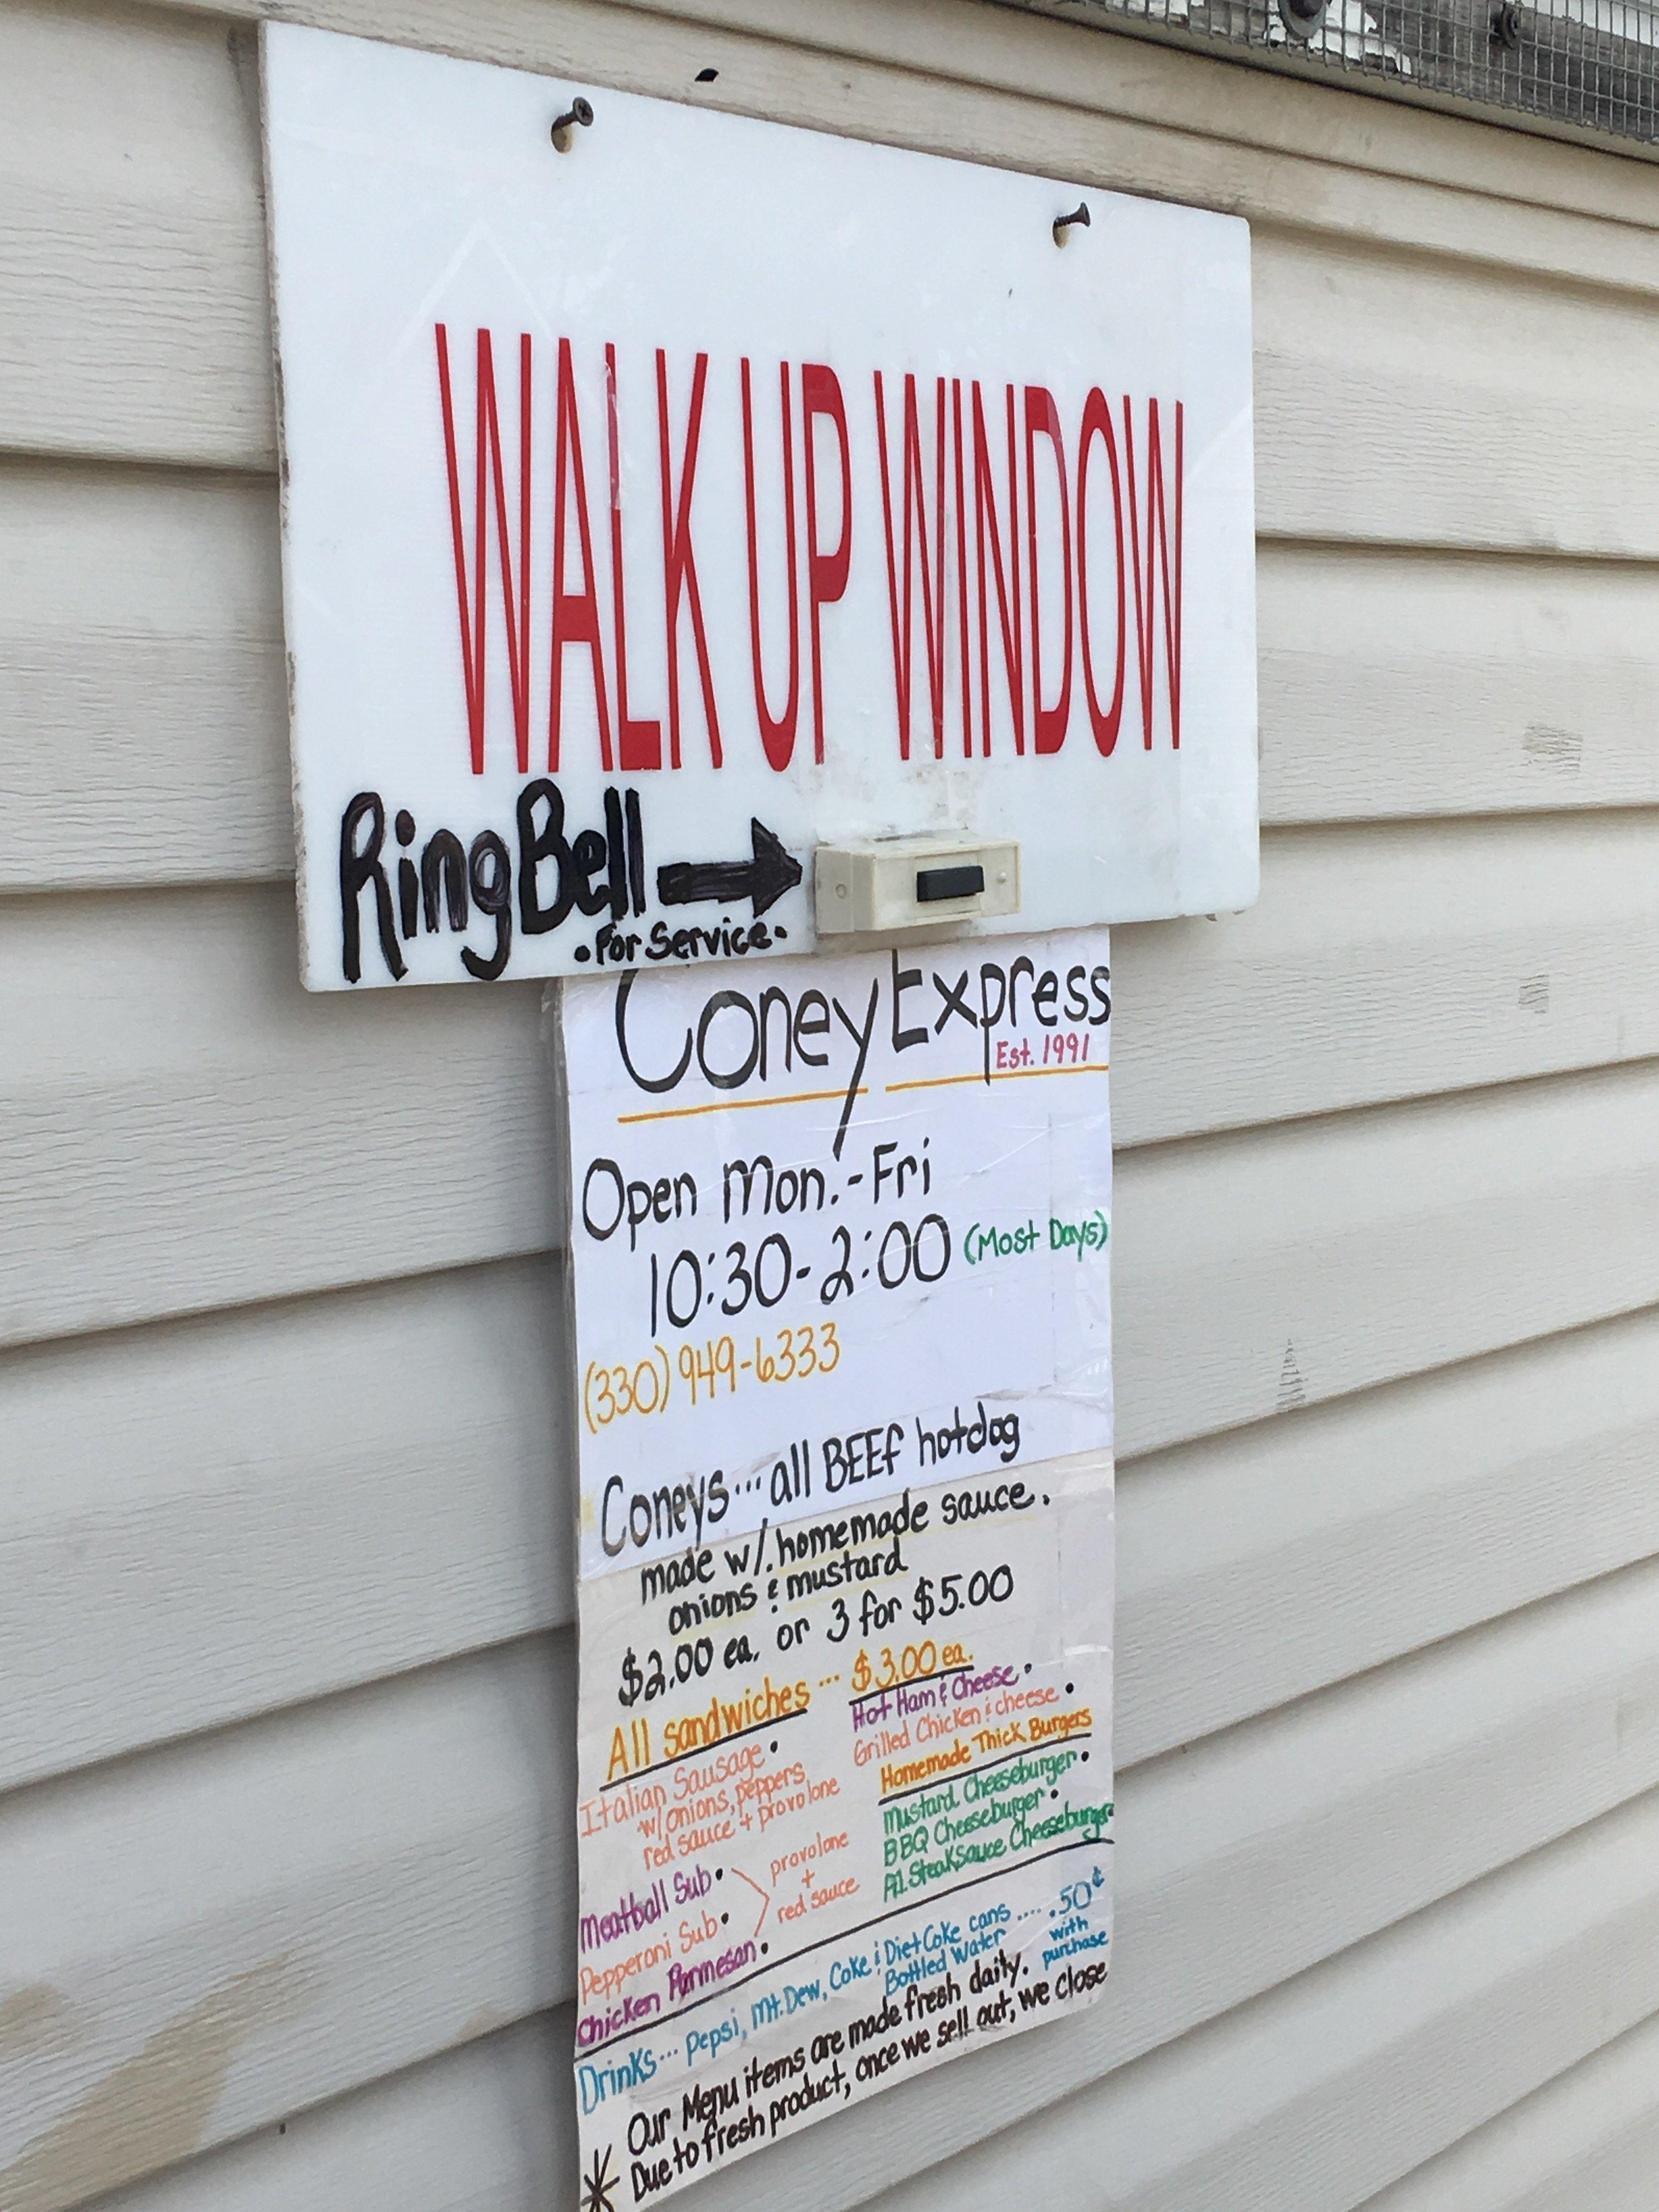 WALK UP WINDOW
Ring Bell
• For Service •
Coney Express
Est. 1991
Open Mon.-Fri
10:30-2:00 (Most Days)
(330) 949-6333
Coneys... all BEEF hotdog
made w/. homemade sauce.
onions & mustard
$2.00 ea. or 3 for $5.00
All sandwiches ... $3.00 ea.
Italian Sausage •
w/ onions, peppers
red sauce + provolone
Meatball Sub •
Pepperoni Sub •
Chicken Parmesan •
provolone
+
red sauce
Hot Ham & Cheese •
Grilled Chicken & cheese •
Homemade Thick Burgers
Mustard Cheeseburger •
BBQ Cheeseburger •
A1. Steak Sauce Cheeseburger •
Drinks... Pepsi, Mt. Dew, Coke & Diet Coke cans .... .50¢
Bottled Water
with
purchase
* Our Menu items are made fresh daily.
Due to fresh product, once we sell out, we close